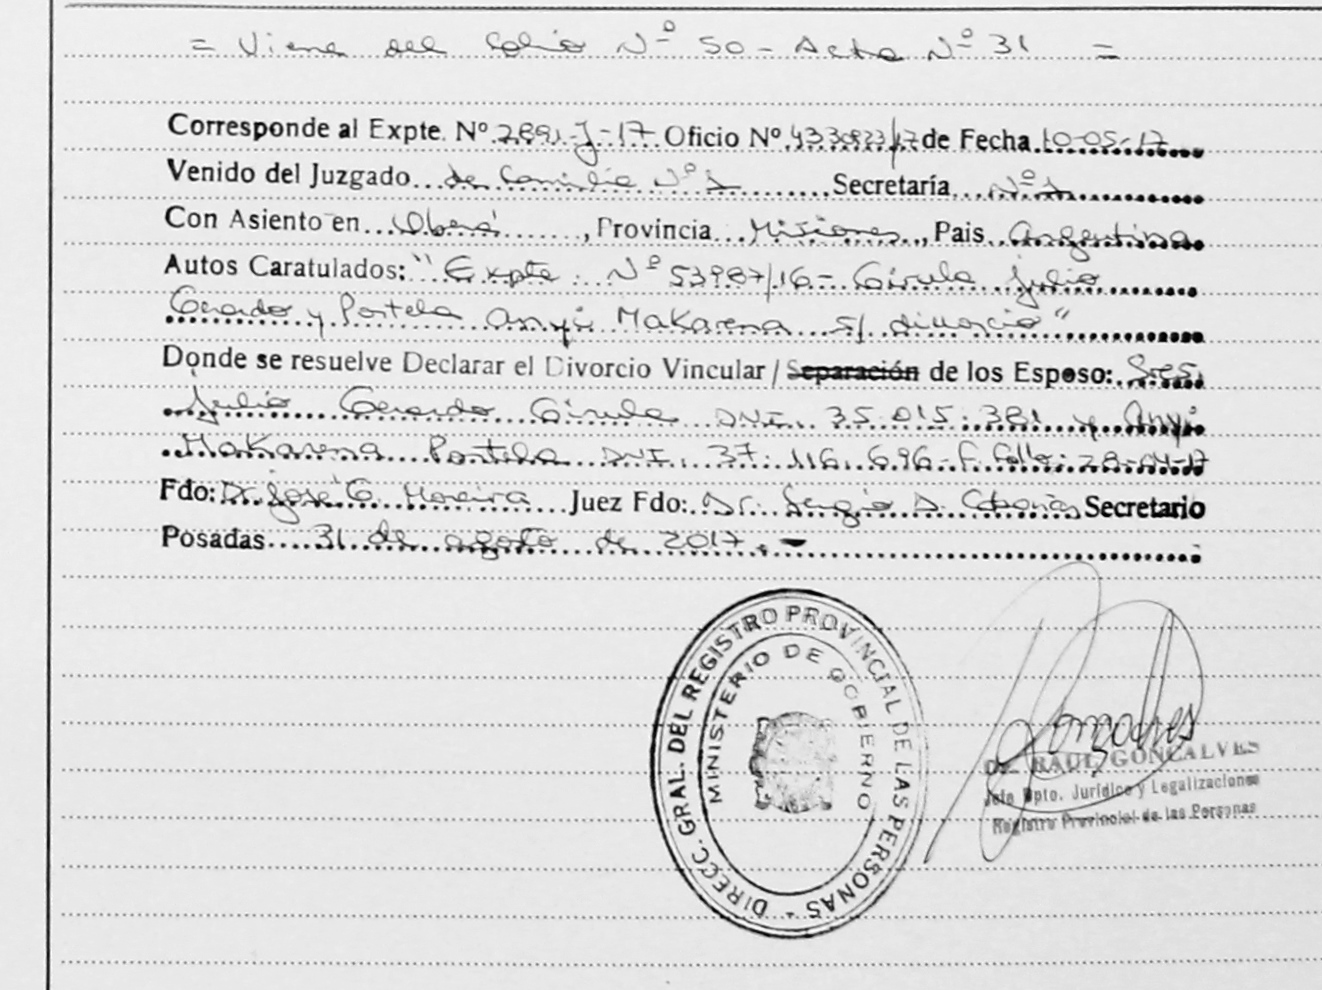 = Viene del folio Nº 50 - Acta Nº 31 =
Corresponde al Expte. Nº 2891-J-17 Oficio Nº 4330823/17 de Fecha 10-05-17
Venido del Juzgado de Familia Nº 1 Secretaría Nº 1
Con Asiento en Oberá, Provincia Misiones, Pais Argentina
Autos Caratulados: "Expte. Nº 53987/16 - Girula Julio
Gerardo y Portela Anyi Makarena s/ divorcio"
Donde se resuelve Declarar el Divorcio Vincular / Separación de los Esposo: Sres.
Julio Gerardo Girula DNI. 35.015.381 y Anyi
Makarena Portela DNI. 37.116.696 - F. Fallo: 28-04-17
Fdo: Dr. José G. Moreira Juez Fdo: Dr. Sergio D. Secretario
Posadas 31 de agosto de 2017.-
DIRECC. GRAL. DEL REGISTRO PROVINCIAL DE LAS PERSONAS -
MINISTERIO DE GOBIERNO
Dr. RAUL GONCALVES
Jefe Dpto. Jurídico y Legalizaciones
Registro Provincial de las Personas